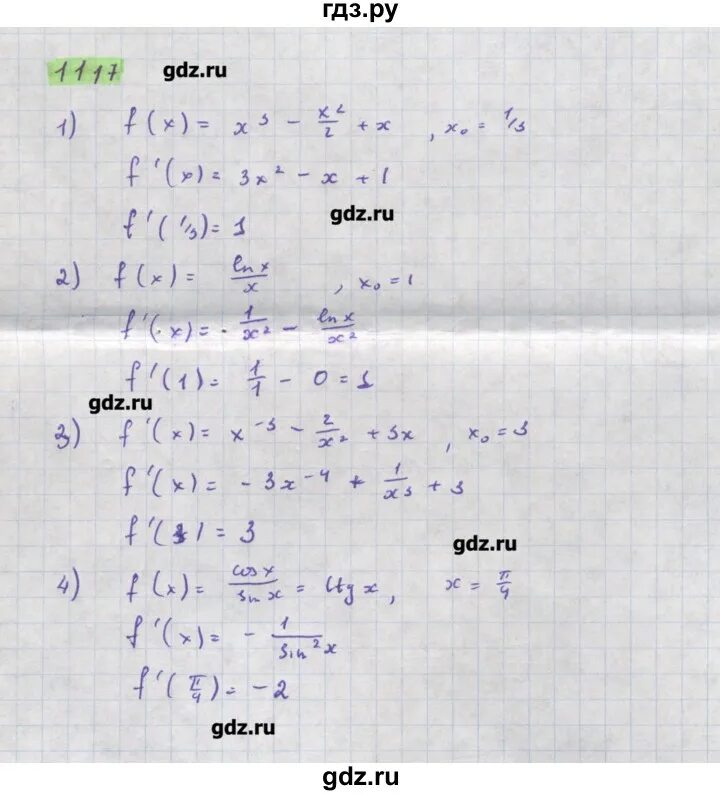 гдз.ру
1117 gdz.ru
1) f(x) = x³ - x²/2 + x , x₀ = 1/3
f'(x) = 3x² - x + 1
gdz.ru
f'(1/3) = 1
2) f(x) = ln x/x , x₀ = 1
f'(x) = 1/x² - ln x/x²
f'(1) = 1/1 - 0 = 1
gdz.ru
3) f'(x) = x⁻³ - 2/x² + 3x , x₀ = 3
f'(x) = -3x⁻⁴ + 1/x³ + 3
f'( ) = 3
gdz.ru
4) f(x) = cos x/sin x = ctg x, x = π/4
f'(x) = - 1/sin² x
f'(π/4) = -2
gdz.ru
gdz.ru